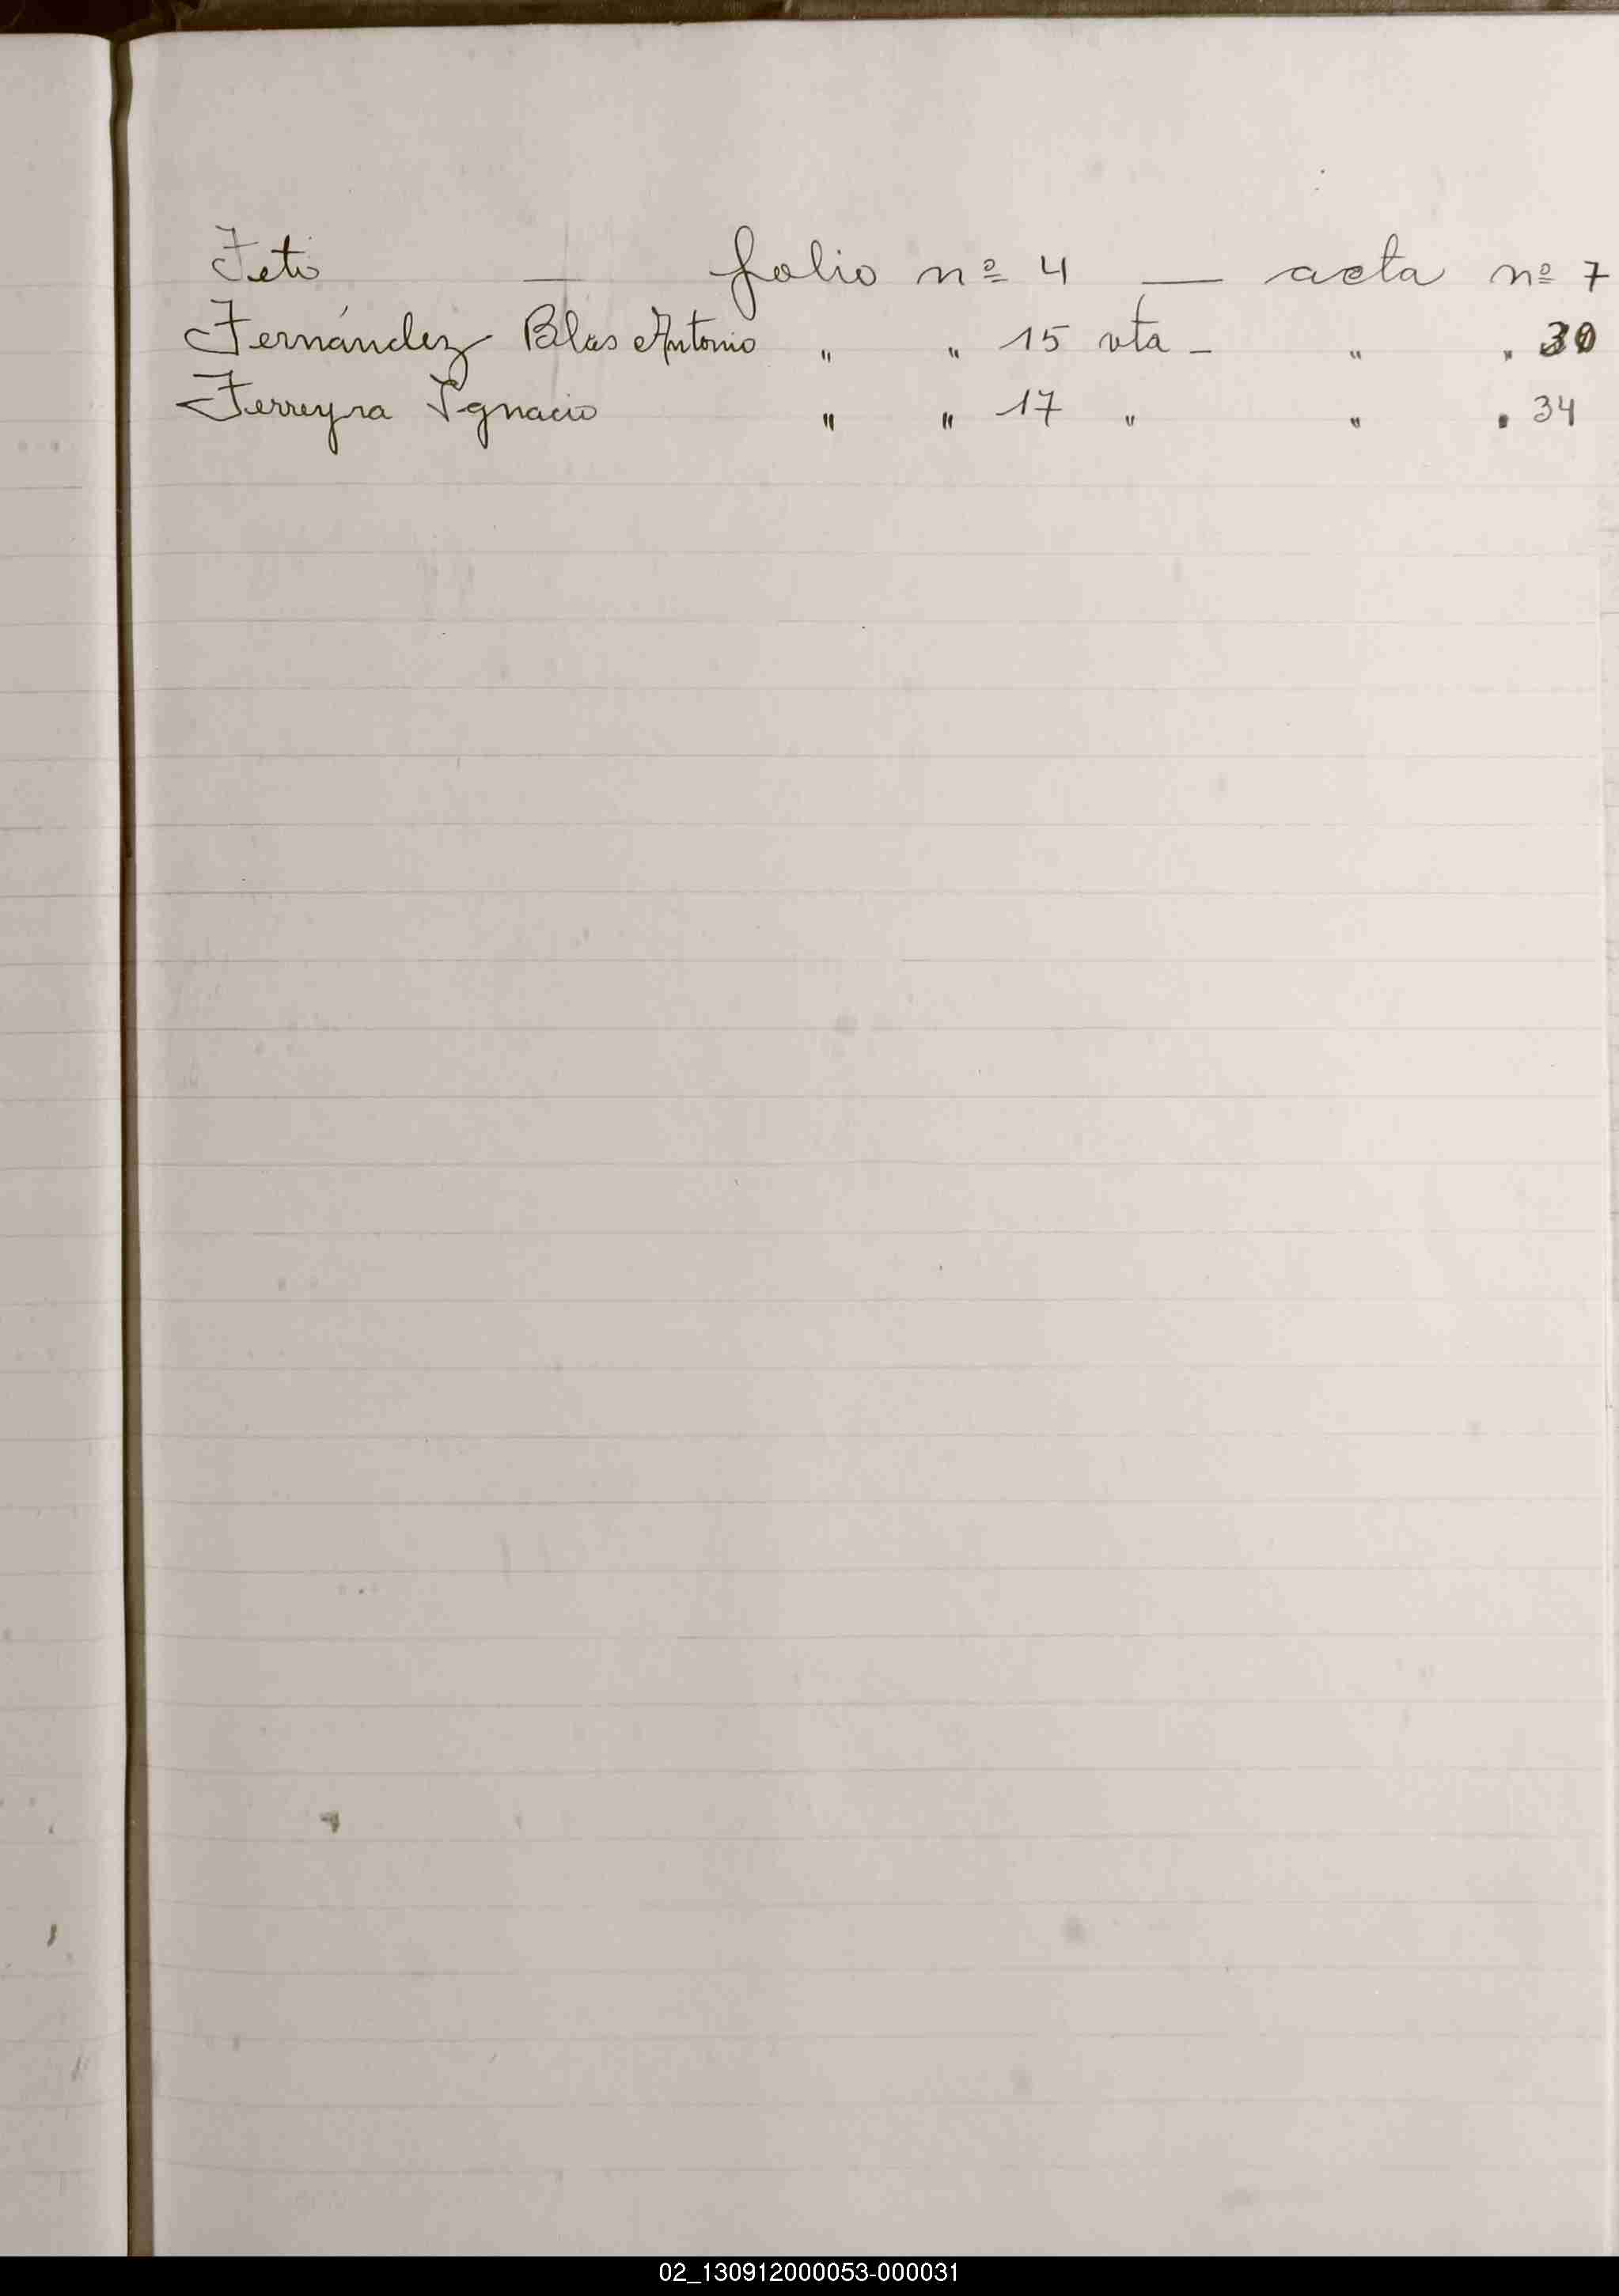 Feto — folio nº 4 — acta nº 7
Fernández Blas Antonio " " 15 vta - " "
Ferreyra Ygnacio " " 17 " " " 34
02_130912000053-000031